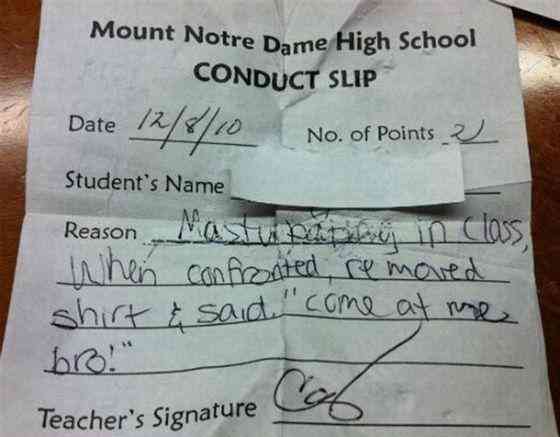 Mount Notre Dame High School
CONDUCT SLIP
Date 12/8/10 No. of Points 2
Student's Name
Reason Masturbating in class,
When confronted, removed
shirt & said, "come at me,
bro!"
Teacher's Signature